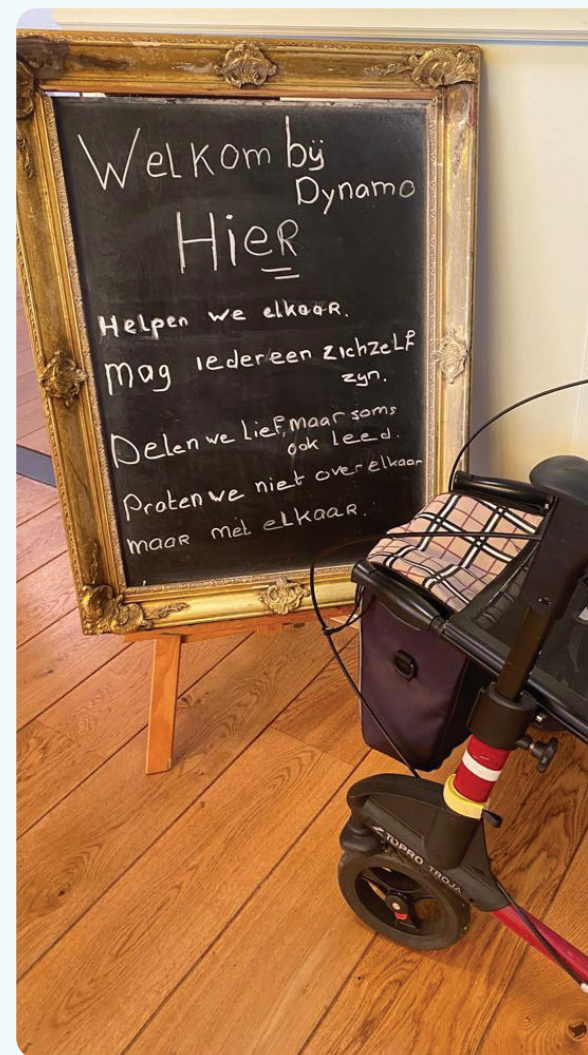 Welkom bij
Dynamo
Hier
Helpen we elkaar.
mag iedereen zichzelf
zyn.
Delen we lief, maar soms
ook leed.
Praten we niet over elkaar
maar met elkaar.
TOPRO TROJA